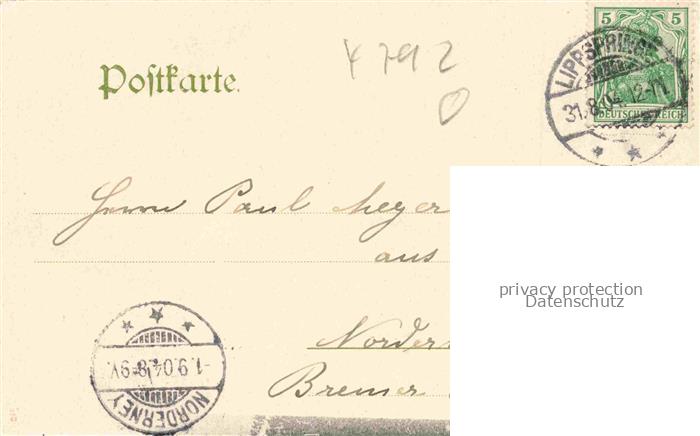 Postkarte.
5 5
DEUTSCHES REICH
LIPPSPRINGE
31.8.04. 12-1N.
Herrn Paul Meyer
aus
Norder
Bremer
NORDERNEY
-1.9.04. 8-9V.
privacy protection
Datenschutz